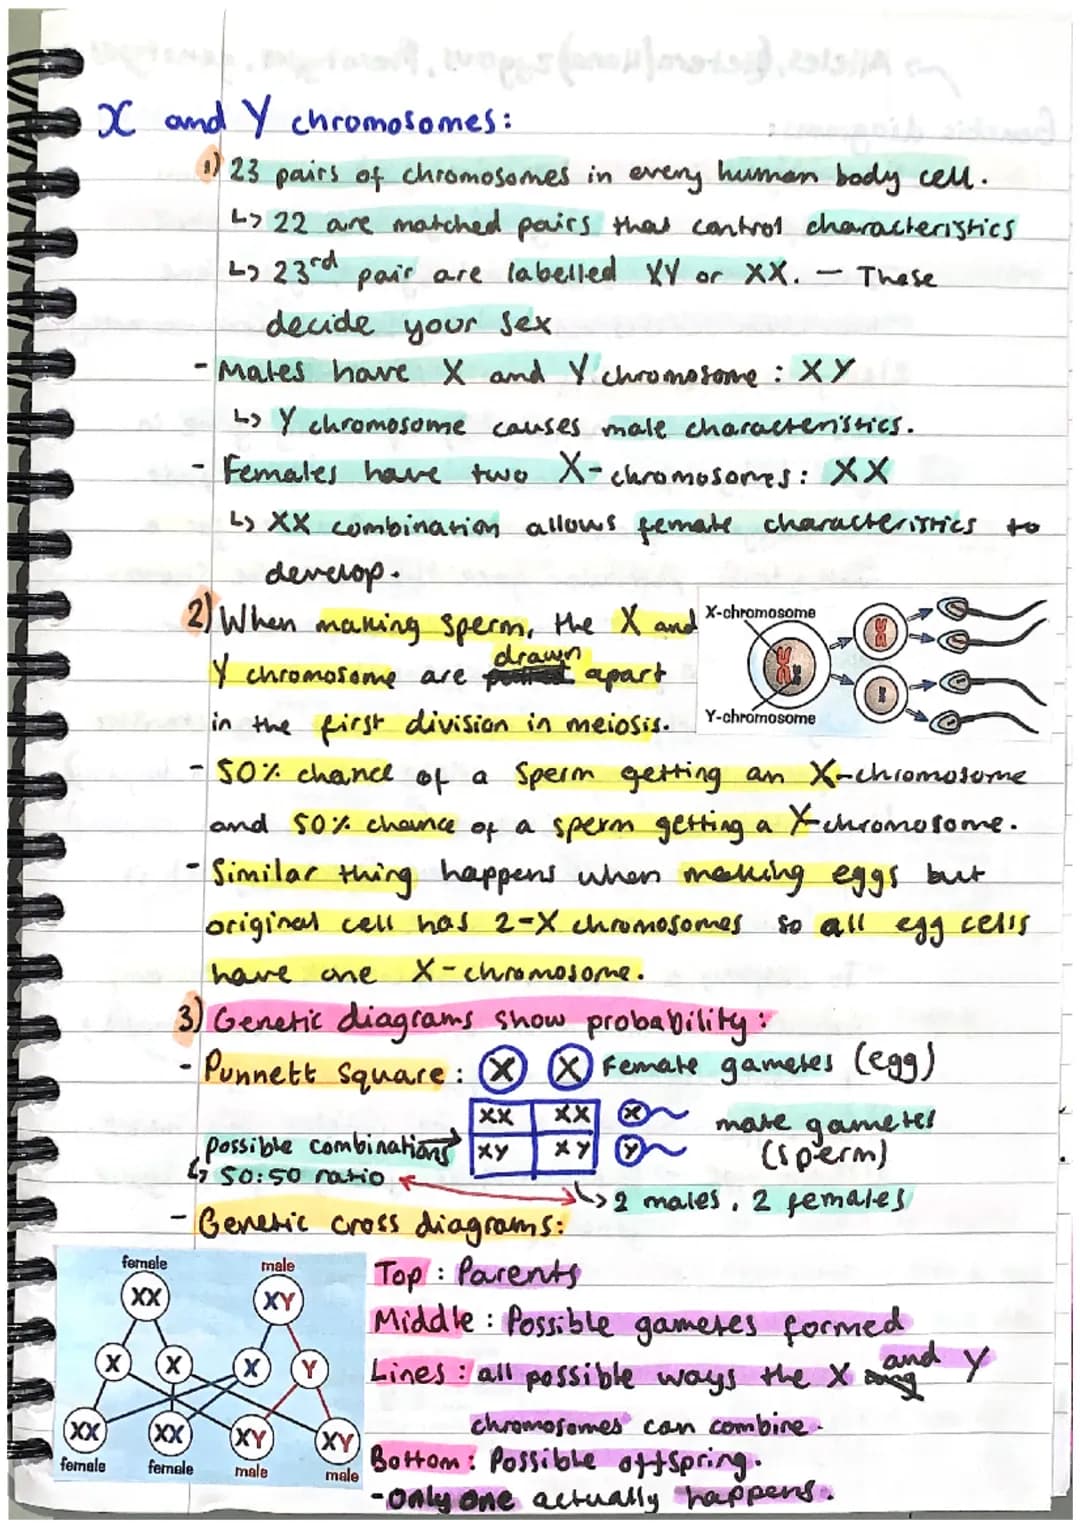 X and Y chromosomes:
1) 23 pairs of chromosomes in every human body cell.
↳ 22 are matched pairs that control characteristics
↳ 23rd pair are labelled XY or XX. - These
decide your sex
- Males have X and Y chromosome : XY
↳ Y chromosome causes male characteristics.
- Females have two X-chromosomes: XX
↳ XX combination allows female characteristics to
develop.
2) When making sperm, the X and
Y chromosome are drawn apart
in the first division in meiosis.
X-chromosome
Y-chromosome
- 50% chance of a sperm getting an X-chromosome
and 50% chance of a sperm getting a Y-chromosome.
- Similar thing happens when making eggs but
original cell has 2-X chromosomes so all egg cells
have one X-chromosome.
3) Genetic diagrams show probability:
- Punnett square: X X Female gametes (egg)
XX XX X male gametes
possible combinations XY XY Y (sperm)
↳ 50:50 ratio ↳ 2 males, 2 females
- Genetic cross diagrams:
female male
XX XY
X X X Y
XX XX XY XY
female female male male
Top : Parents
Middle : Possible gametes formed
Lines : all possible ways the X and Y
chromosomes can combine.
Bottom: Possible offspring.
- only one actually happens.